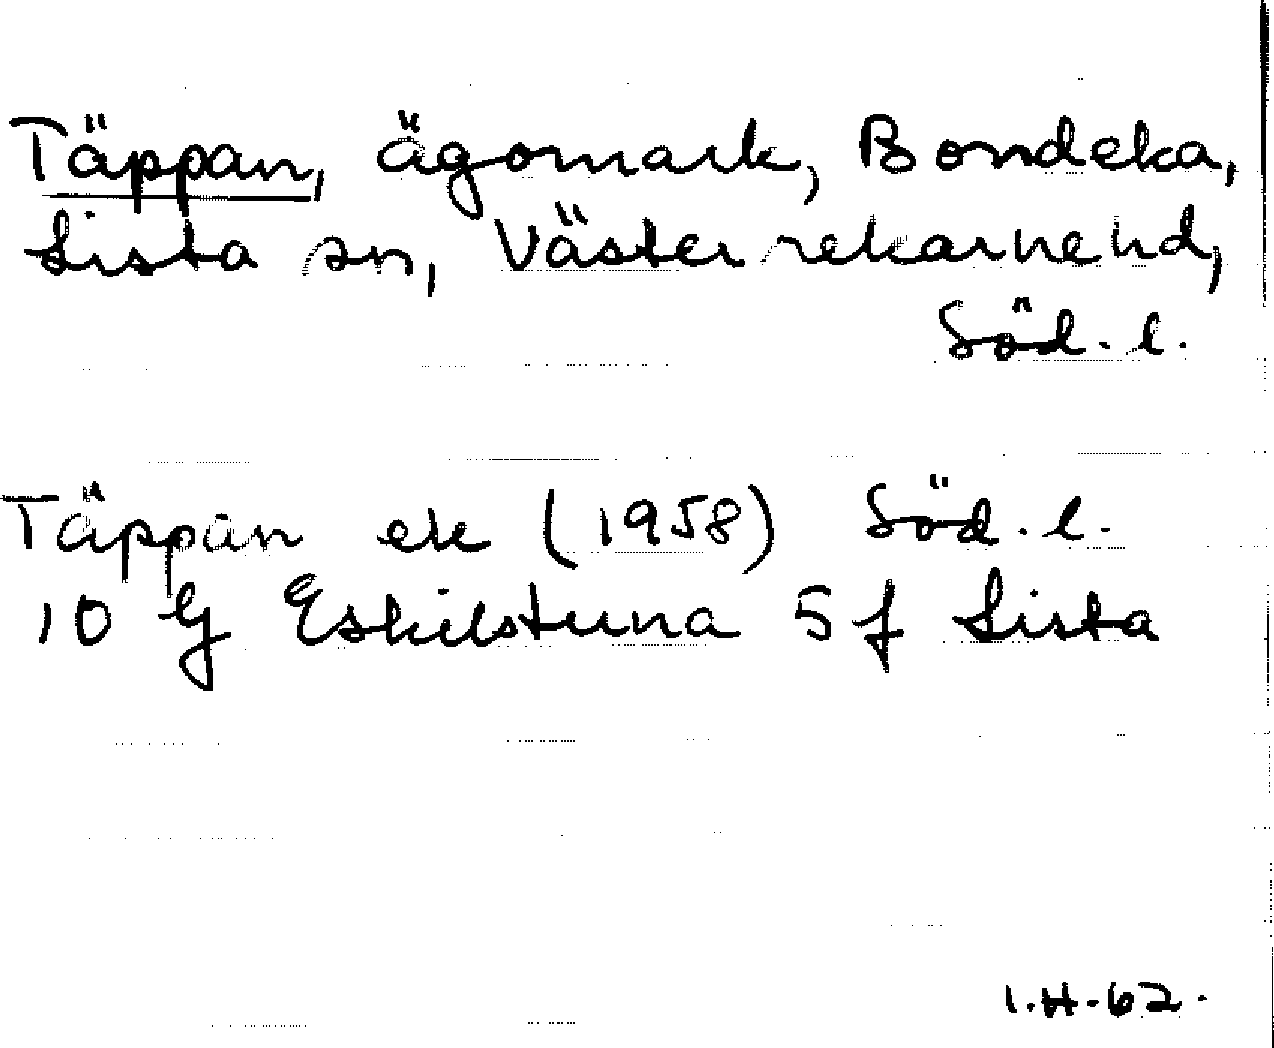 Täppan, ägomark, Bondeka,
Lista sn, Västerrekarnehd,
Söd. l.
Täppan ek (1958) Söd. l.
10 G Eskilstuna 5 f Lista
I.H-62.